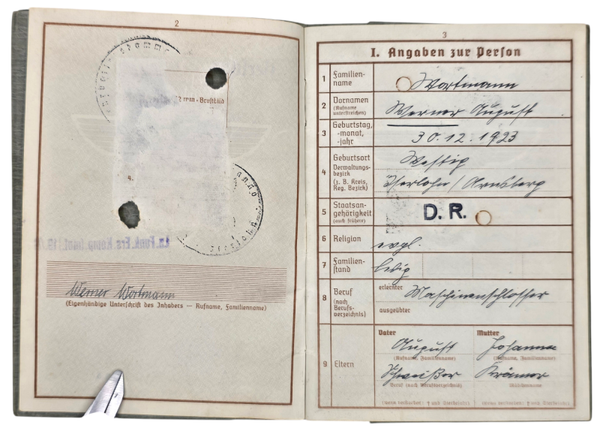 2
Werner Wortmann
(Eigenhändige Unterschrift des Inhabers — Rufname, Familienname)
3
I. Angaben zur Person
1 Familien-
name
Wortmann
2 Vornamen
(Rufname
unterstreichen)
Werner August
3 Geburtstag,
-monat,
-jahr
30.12.1923
4 Geburtsort
Verwaltungs-
bezirk
(z. B. Kreis,
Reg. Bezirk)
Westig
Iserlohn/Arnsberg
5 Staatsan-
gehörigkeit
(auch frühere)
D. R.
6 Religion
evgl.
7 Familien-
stand
ledig
8 Beruf
(nach
Berufs-
verzeichnis)
erlernter
Maschinenschlosser
ausgeübter
9 Eltern
Vater Mutter
August Johanna
(Rufname, Familienname) (Rufname, Familienname)
Schweißer Krämer
(Beruf (nach Berufsverzeichnis)) (Mädchenname)